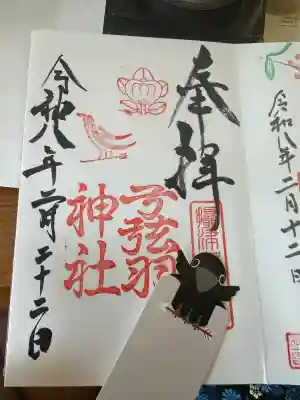 令和八年二月十二日
奉拝
弓弦羽
神社
令和八年二月二十二日